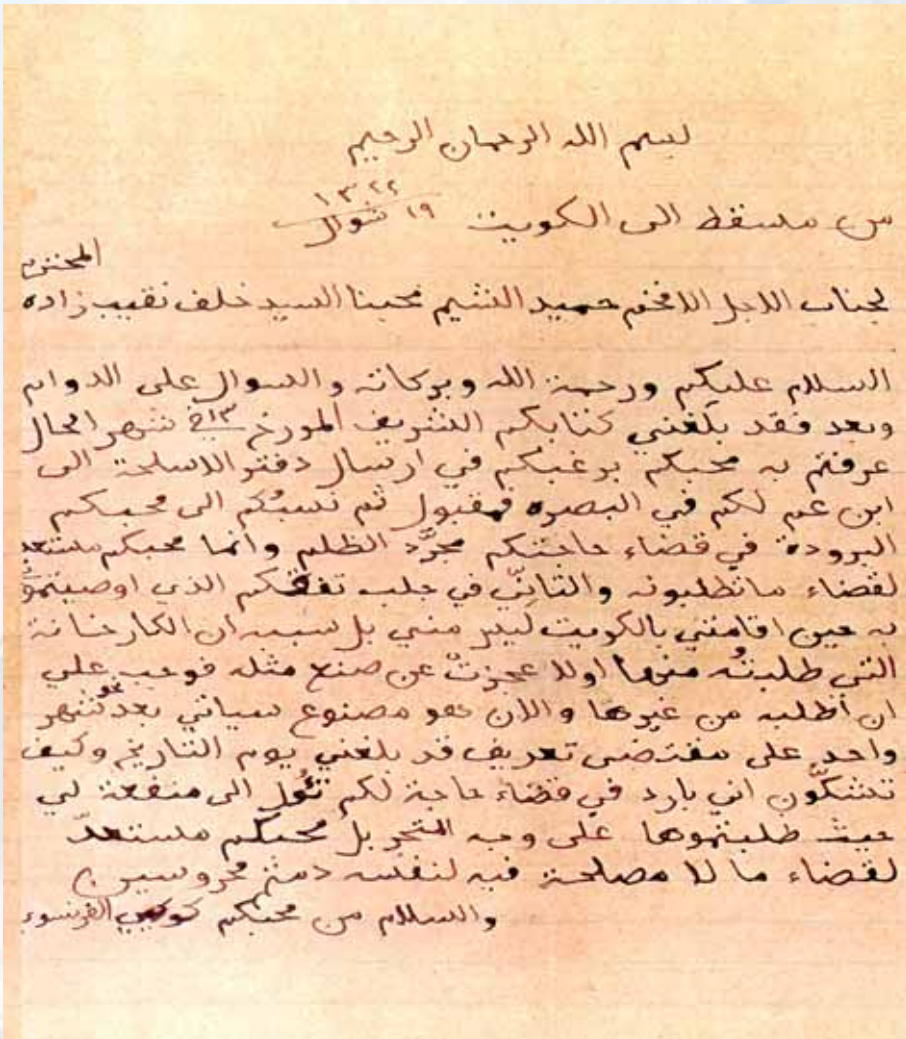 بسم الله الرحمان الرحيم
من مسقط الى الكويت ١٩ شوال ١٣٢٢
المحترم
لجناب الاجل الافخم حميد الشيم محبنا السيد خلف نقيب زاده
السلام عليكم ورحمة الله وبركاته والسوال على الدوام
وبعد فقد بلغني كتابكم الشريف المورخ ١٣ شهر الحال
عرفتم به محبكم برغبكم في ارسال دفتر الاسلحة الى
ابن عم لكم في البصره فمقبول ثم نسبتكم الى محبكم
البرودة في قضاء حاجتكم مجرّد الظلم وانما محبكم مستعد
لقضاء ما تطلبونه والتانّي في جلب تفقكم الذي اوصيتمو
به حين اقامتي بالكويت ليس مني بل سببه ان الكارخانة
التي طلبتُه منها اولا عجزتْ عن صنع مثله فوجب علي
ان أطلبه من غيرها والان هو مصنوع سياتي بعد شهر
واحد على مقتضى تعريف قد بلغني يوم التاريخ وكيف
تشكّون اني بارد في قضاء حاجة لكم تؤل الى منفعة لي
حيث طلبتموها على وجه المتجر بل محبكم مستعدّ
لقضاء ما لا مصلحة فيه لنفسه دمتم محروسين
والسلام من محبكم الفرنسوي